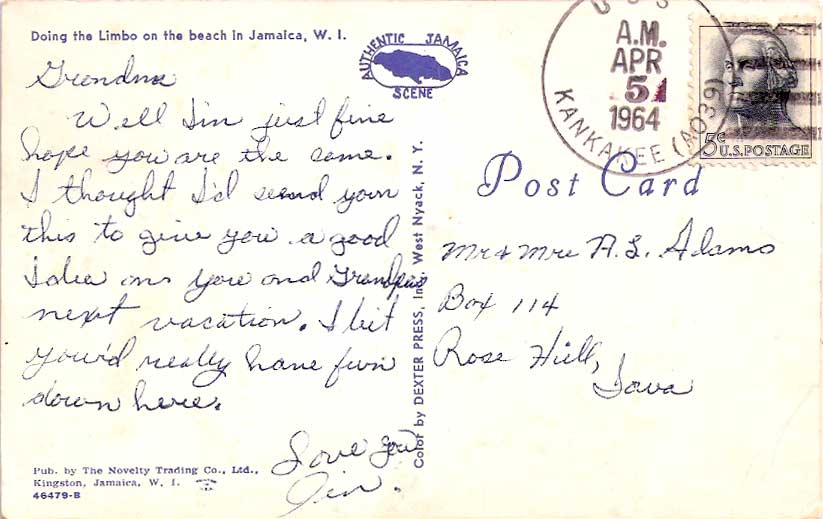 Doing the Limbo on the beach in Jamaica, W. I.
AUTHENTIC JAMAICA
SCENE
Grandma
Well I'm just fine
hope you are the same.
I thought I'd send you
this to give you a good
Idea on you and Grandpas
next vacation. I bit
you'd really have fun
down here.
Love you
Jim.
Pub. by The Novelty Trading Co., Ltd.,
Kingston, Jamaica, W. I.
46479-B
Color by DEXTER PRESS, Inc., West Nyack, N. Y.
USS
A.M.
APR
5
1964
KANKAKEE (AO39)
5c U.S. POSTAGE
Post Card
Mr & Mrs A. L. Adams
Box 114
Rose Hill,
Iowa